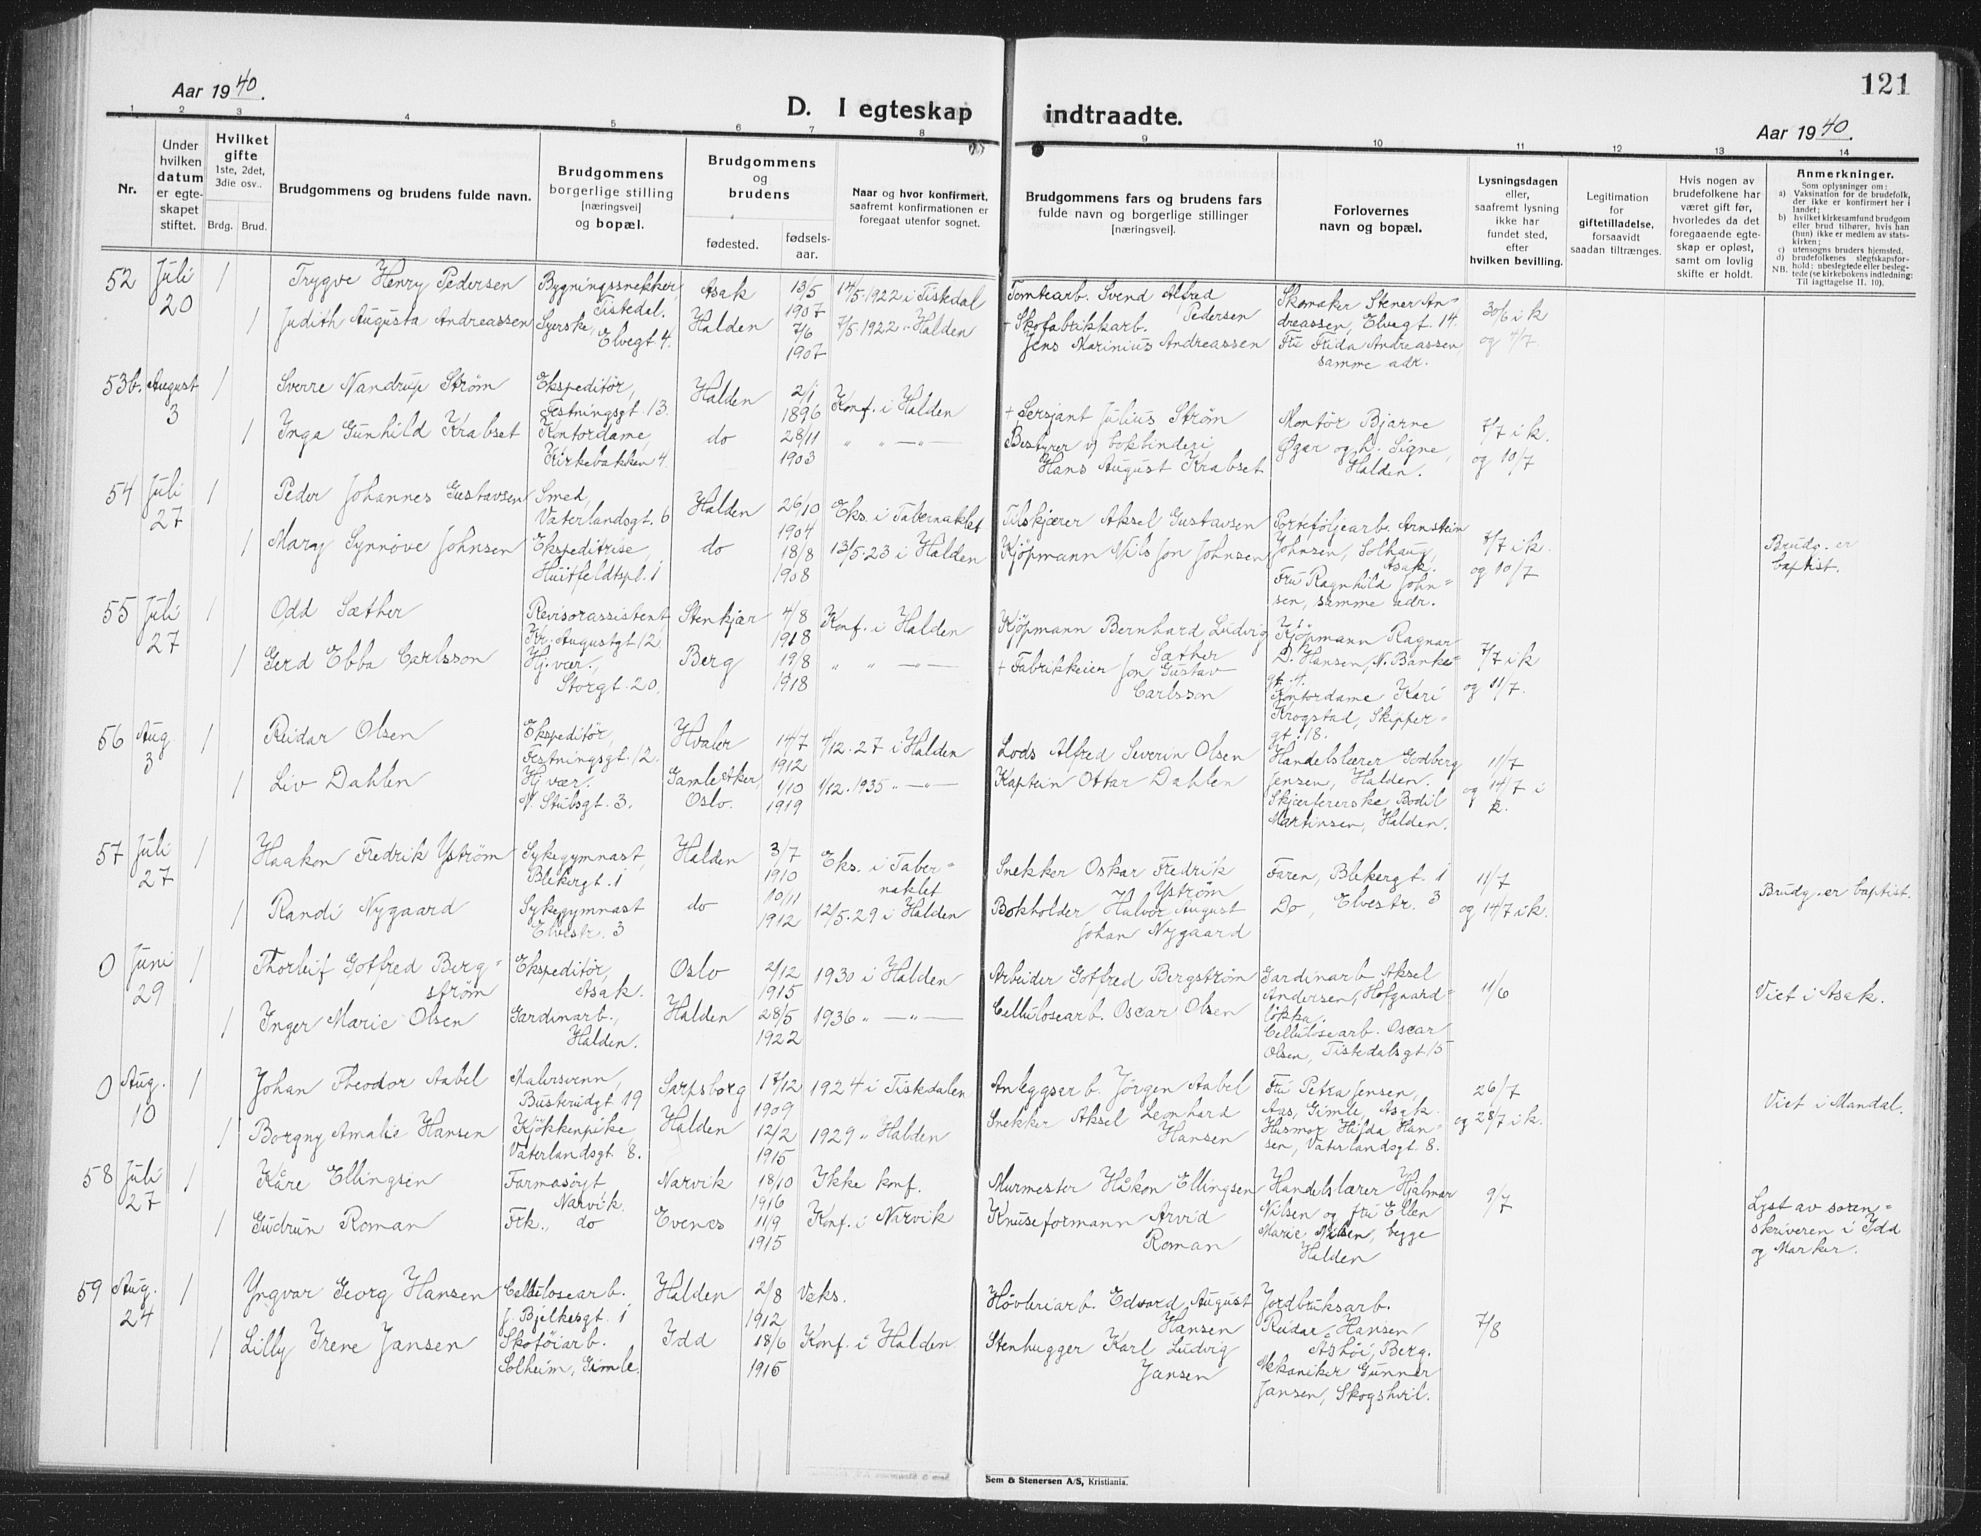 121
Aar 1940.
D. I egteskap indtraadte.
Aar 1940.
1 2 3 4 5 6 7 8 9 10 11 12 13 14
Nr.
Under hvilken datum er egte-skapet stiftet.
Hvilket gifte 1ste, 2det, 3die osv..
Brdg. Brud.
Brudgommens og brudens fulde navn.
Brudgommens borgerlige stilling [næringsvei] og bopæl.
Brudgommens og brudens
fødested.
fødsels-aar.
Naar og hvor konfirmert, saafremt konfirmationen er foregaat utenfor sognet.
Brudgommens fars og brudens fars fulde navn og borgerlige stillinger [næringsvei].
Forlovernes navn og bopæl.
Lysningsdagen eller, saafremt lysning ikke har fundet sted, efter hvilken bevilling.
Legitimation for giftetilladelse, forsaavidt saadan tiltrænges.
Hvis nogen av brudefolkene har været gift før, hvorledes da det foregaaende egte-skap er opløst, samt om lovlig skifte er holdt.
Anmerkninger.
Som oplysninger om:
a) Vaksination for de brudefolk, der ikke er konfirmert her i landet;
b) hvilket kirkesamfund brudgom eller brud tilhører, hvis han (hun) ikke er medlem av stats-kirken;
c) utensogns bruders hjemsted.
d) brudefolkenes slegtskapsfor-hold: ubeslegtede eller besleg-tede (se kirkebokens indledning:
NB. Til iagttagelse II. 10).
52 Juli 20 1 Trygve Henry Pedersen Bygningssnekker, Tistedal. Asak 13/5 1907 14/5-1922 i Tistedal Tomtearb. Svend Alfred Pedersen Skomaker Stener An-dreassen, Elvegt. 14. 30/6 i k og 4/7.
1 Judith Augusta Andreassen Syerske, Elvegt 4. Halden 7/6 1907 7/5-1922 " Halden + Skofabrikkarb. Jens Marinius Andreassen Fru Frida Andreassen, samme adr.
53b. August 3 1 Sverre Nandrup Strøm Ekspeditör, Festningsgt. 13. Halden 2/1 1896 Konf. i Halden + Sersjant Julius Strøm Montör Bjarne Øgar og h. Signe, Halden. 7/7 i k. og 10/7
1 Inga Gunhild Krabset Kontordame, Kirkebakken 4. do 28/11 1903 " " — " — Bestyrer v/ bokbinderi Hans August Krabset
54 Juli 27 1 Peder Johannes Gustavsen Smed, Vaterlandsgt. 6 Halden 26/10 1904 Eks. i Tabernaklet Tilskjærer Aksel Gustavsen Porteföljearb. Arnstein Johnsen, Solhaug, Asak. 7/7 i k. og 10/7 Brudg. er baptist.
1 Mary Synnöve Johnsen Ekspeditrise, Huitfeldtspl. 1 do 18/8 1908 13/5-23 i Halden Kjøpmann Nils Jon Johnsen Fru Ragnhild John-sen, samme adr.
55 Juli 27 1 Odd Sæther Revisorassistent Kr. Augustgt 12 Stenkjær 4/8 1918 Konf. i Halden Kjöpmann Bernhard Ludvig Sæther Kjöpmann Ragnar D. Hansen, N. Banke-gt. 4. 7/7 i k og 11/7.
1 Gerd Ebba Carlsson Hj. vær., Storgt. 20. Berg 19/8 1918 " " — " — + Fabrikkeier Jon Gustav Carlsson Kontordame Kari Krogstad, Skipper-gt. 18.
56 Aug 3 1 Reidar Olsen Ekspeditör, Festningsgt. 12. Hvaler 14/7 1912 4/12-27 i Halden Lods Alfred Severin Olsen Handelslærer Godberg Jensen, Halden. 11/7 og 14/7 i k.
1 Liv Dahlen Hj. vær. N. Stubsgt. 3. Gamle Aker, Oslo. 1/10 1919 1/12-1935 " — " — Kaptein Ottar Dahlen Skjærfererske Bodil Martinsen, Halden.
57 Juli 27 1 Haakon Fredrik Yström Sykegymnast, Blekergt. 1 Halden 3/7 1910 Eks. i Taber-naklet Snekker Oskar Fredrik Yström Faren, Blekergt. 1 11/7 og 14/7 i k. Brudg. er baptist.
1 Randi Nygaard Sykegymnast Elvestr. 3 do 10/11 1912 12/5-29 i Halden Bokholder Halvor August Johan Nygaard Do, Elvestr. 3
0 Juni 29 1 Thorleif Gotfred Berg-strøm Ekspeditör, Asak. Oslo 2/12 1915 1930 i Halden Arbeider Gotfred Bergstrøm Gardinarb. Aksel Andersen, Hofgaard-løkka. 11/6 Viet i Asak.
1 Inger Marie Olsen Gardinarb., Halden. Halden 28/5 1922 1936 " — " — Cellulosearb. Oscar Olsen Cellulosearb. Oscar Olsen, Tistedalsgt. 15
0 Aug. 10 1 Johan Theodor Aabel Malersvenn, Busterudgt 19 Sarpsborg 17/12 1909 1924 i Tistedalen Anleggsarb. Jørgen Aabel Fru Petra Jensen, Aas, Gimle, Asak. 26/7 og 28/7 i k. Viet i Mandal.
1 Borgny Amalie Hansen Kjøkkenpike, Vaterlandsgt. 8. Halden 12/2 1915 1929 " Halden Snekker Aksel Leonhard Hansen Husmor Hilda Han-sen, Vaterlandsgt. 8.
58 Juli 27 1 Kåre Ellingsen Farmasöyt Narvik. Narvik 18/10 1916 Ikke konf. Murmester Håkon Ellingsen Handelslærer Hjalmar Nilsen og fru Ellen Marie Nilsen, begge Halden 9/7 Lyst av soren-skriveren i Idd og Marker.
1 Gudrun Roman Frk., do Evenes 11/9 1915 Konf. i Narvik Knuseformann Arvid Roman
59 Aug. 24 1 Yngvar Georg Hansen Cellulosearb. J. Bjelkesgt. 1 Halden 2/8 1912 Vaks. Høvleriarb. Edvard August Hansen Jordbruksarb. Reidar Hansen, Åshöi, Berg. 7/8
1 Lilly Irene Jansen Skotöiarb. Solheim, Gimle. Idd 18/6 1915 Konf. i Halden. Stenhugger Karl Ludvig Jansen Mekaniker Gunnar Jansen, Skogshvil.
Sem & Stenersen A/S, Kristiania.